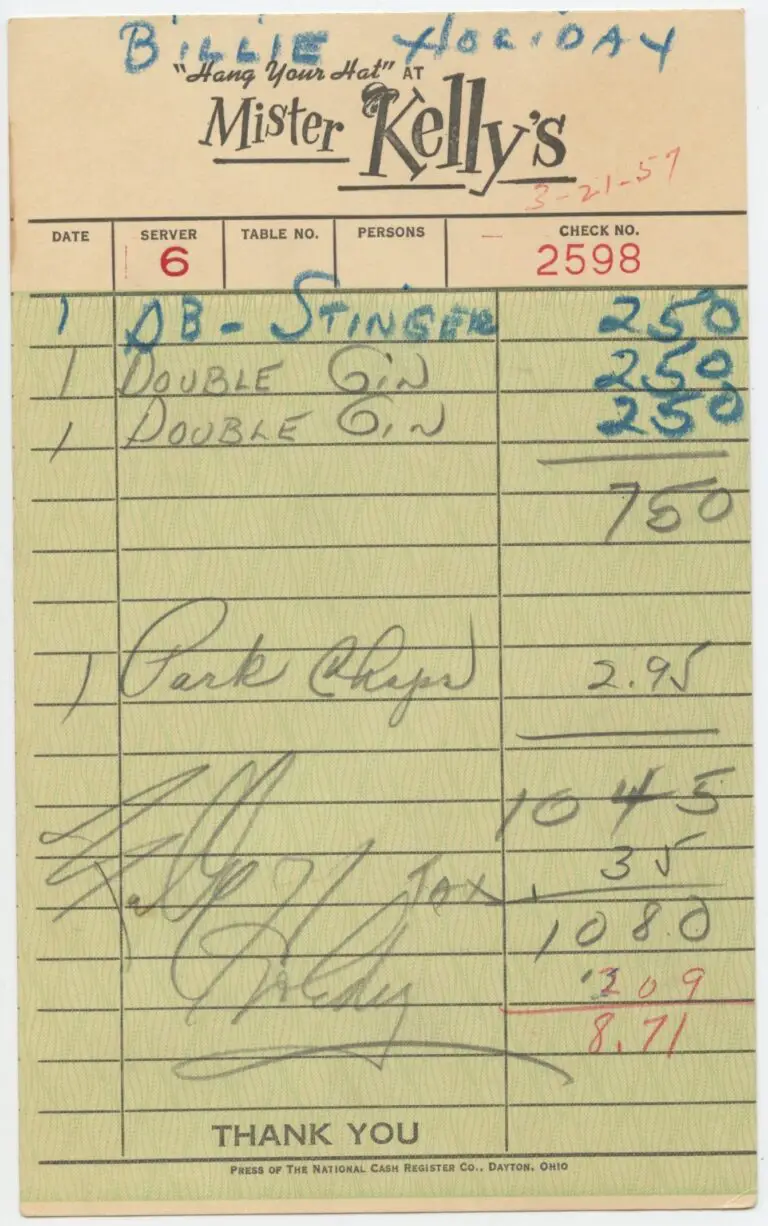 BILLIE HOLIDAY
"Hang Your Hat" AT
Mister Kelly's
3-21-57
DATE SERVER TABLE NO. PERSONS CHECK NO.
6 2598
1 DB - STINGER 250
1 DOUBLE GIN 250
1 DOUBLE GIN 250
750
1 Pork Chops 2.95
1045
Tax 35
1080
209
8.71
THANK YOU
PRESS OF THE NATIONAL CASH REGISTER CO., DAYTON, OHIO